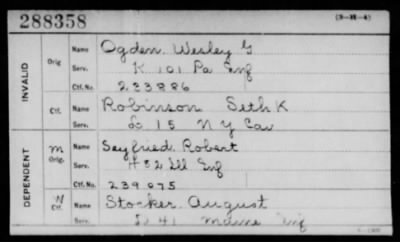 288358
(3-H-4)
INVALID
Orig Name Ogden. Wesley G
Serv. K 101 Pa Inf
Ctf. No. 233886
Ctf. Name Robinson Seth K
Serv. L 15 N Y Cav
DEPENDENT
M Orig. Name Seyfried. Robert
Serv. H 82 Ill Inf
Ctf. No. 239075
W Ctf. Name Stocker. August
Serv. 41 Inf